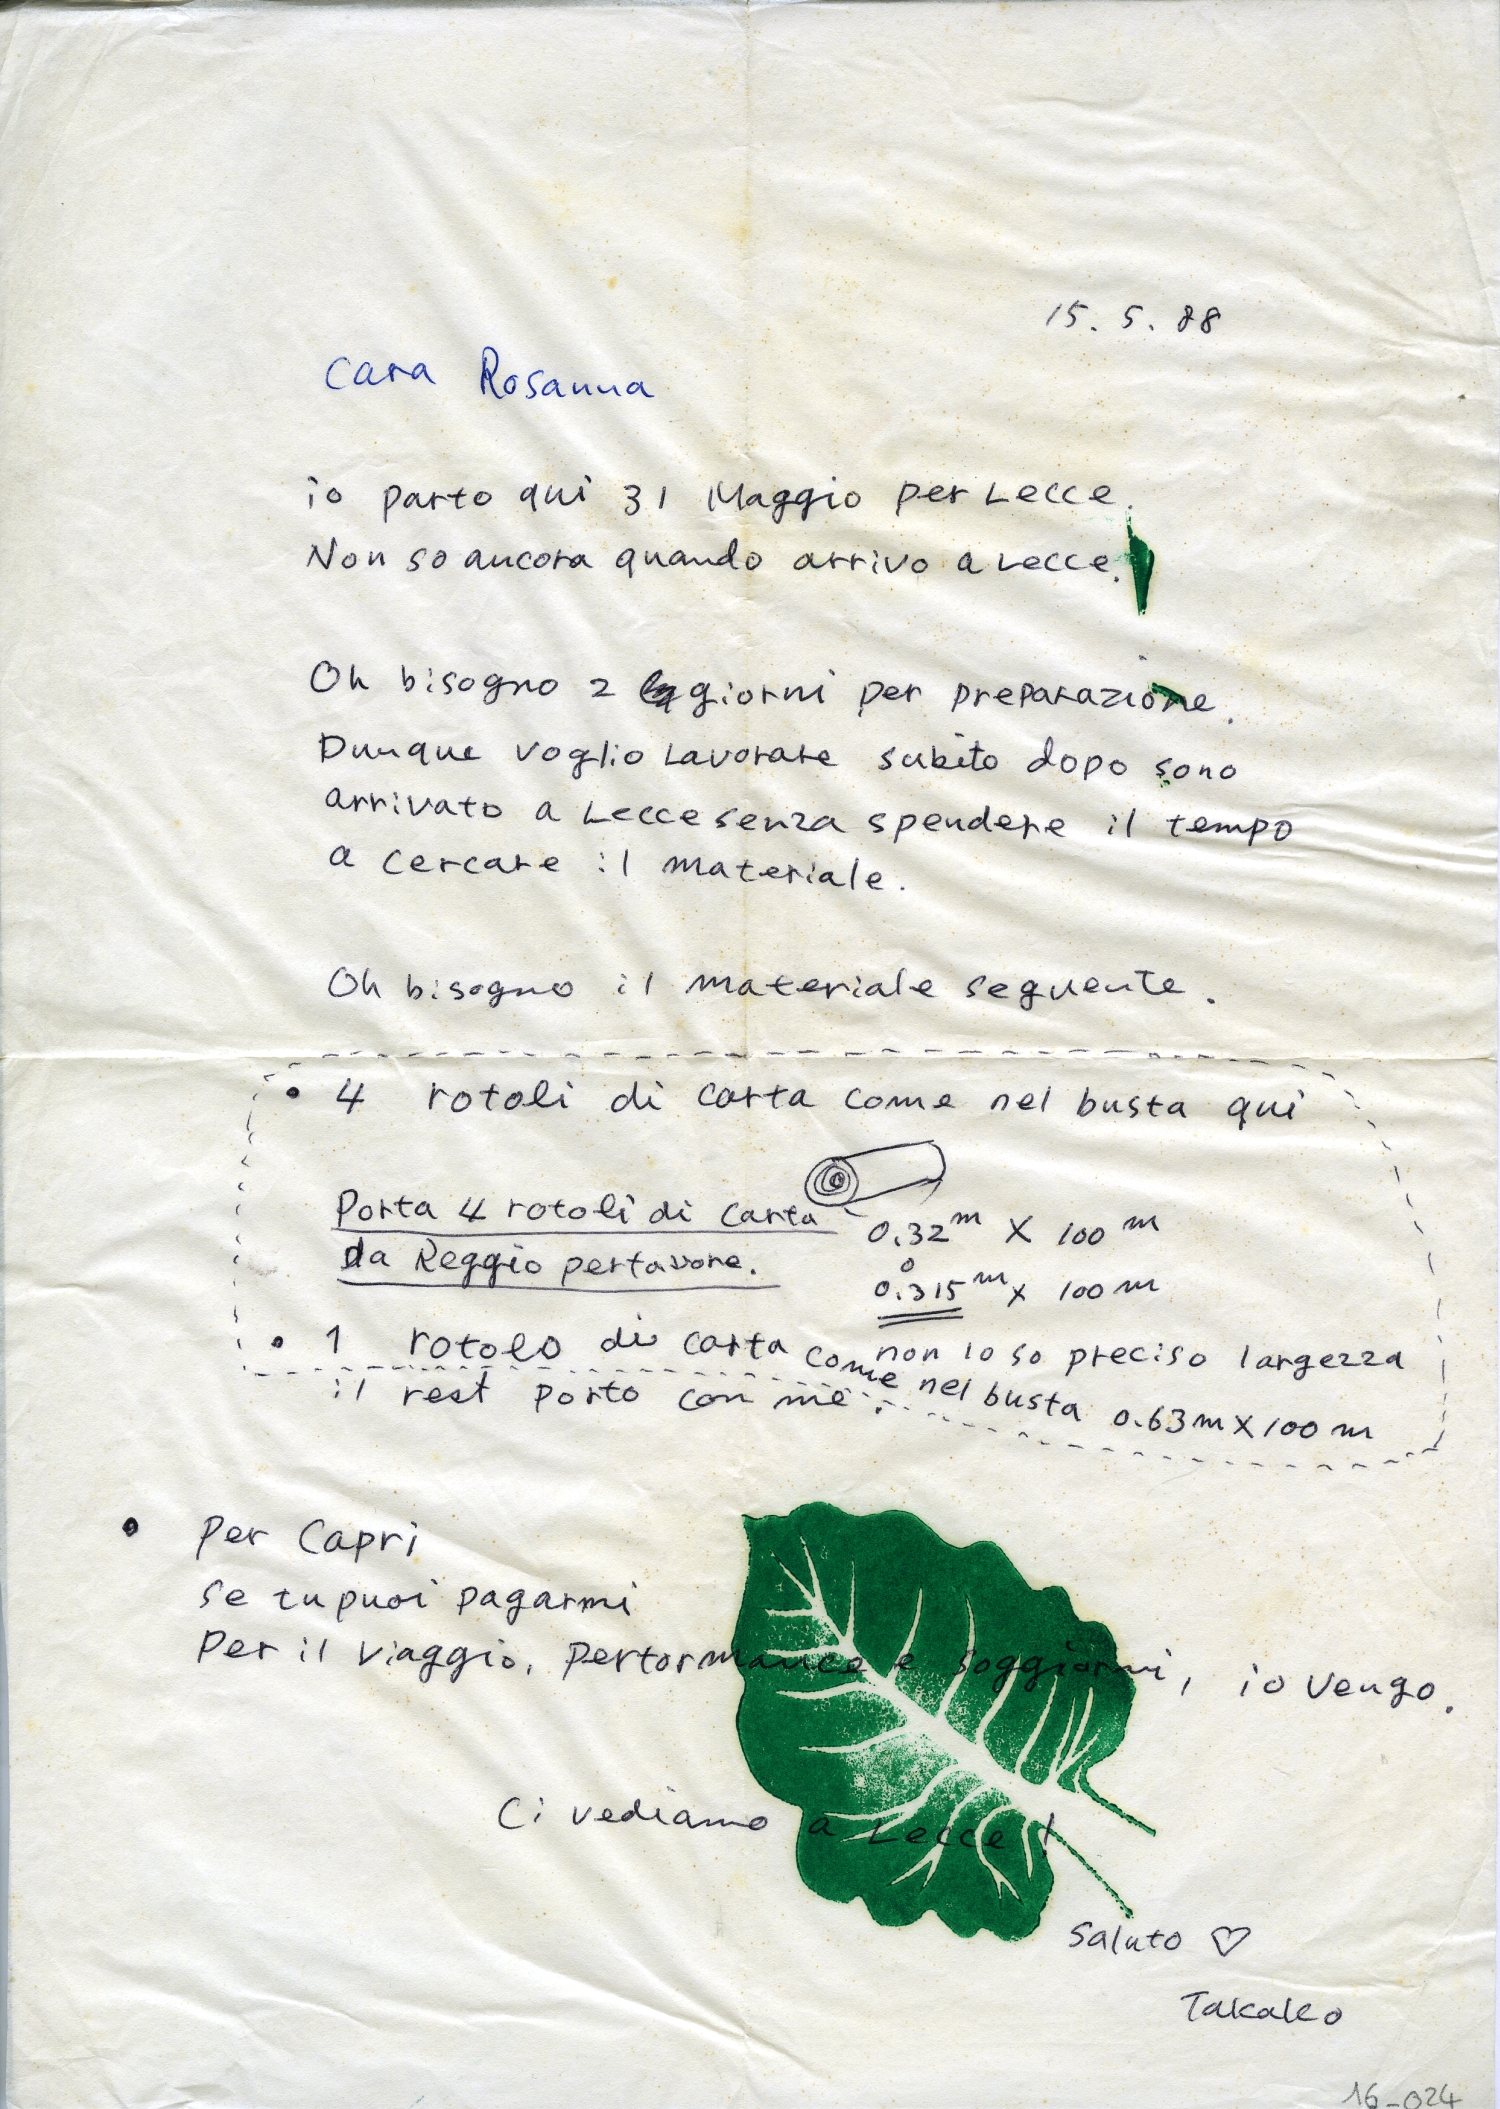 15. 5. 88
Cara Rosanna
io parto qui 31 Maggio per Lecce.
Non so ancora quando arrivo a Lecce.
Oh bisogno 2 giorni per preparazione.
Dunque voglio lavorare subito dopo sono
arrivato a Lecce senza spendere il tempo
a cercare il materiale.
Oh bisogno il materiale seguente.
• 4 rotoli di carta come nel busta qui
Porta 4 rotoli di carta
da Reggio perfavore.
0.32 m X 100 m
o
0.315 m x 100 m
non lo so preciso largezza
• 1 rotolo di carta come nel busta 0.63 m X 100 m
il rest porto con me.
• Per Capri
se tu puoi pagarmi
Per il viaggio, performance e soggiorni, io vengo.
Ci vediamo a Lecce !
Saluto ♡
Takako
16_024